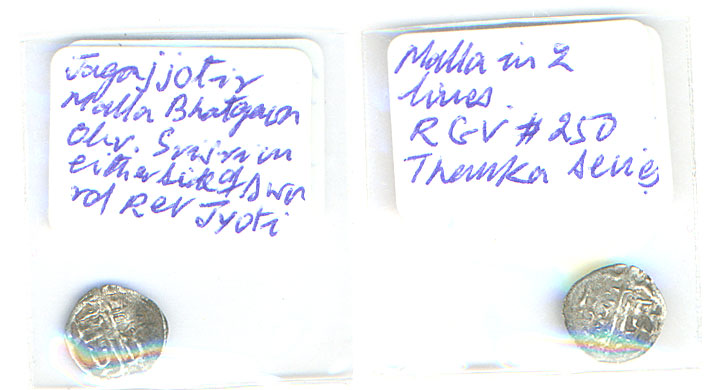 Jagajjotir
Malla Bhatgaon
Obv. Srisri in
either side of Swo
rd Rev Jyoti
Malla in 2
lines.
RGV # 250
Thamka Series